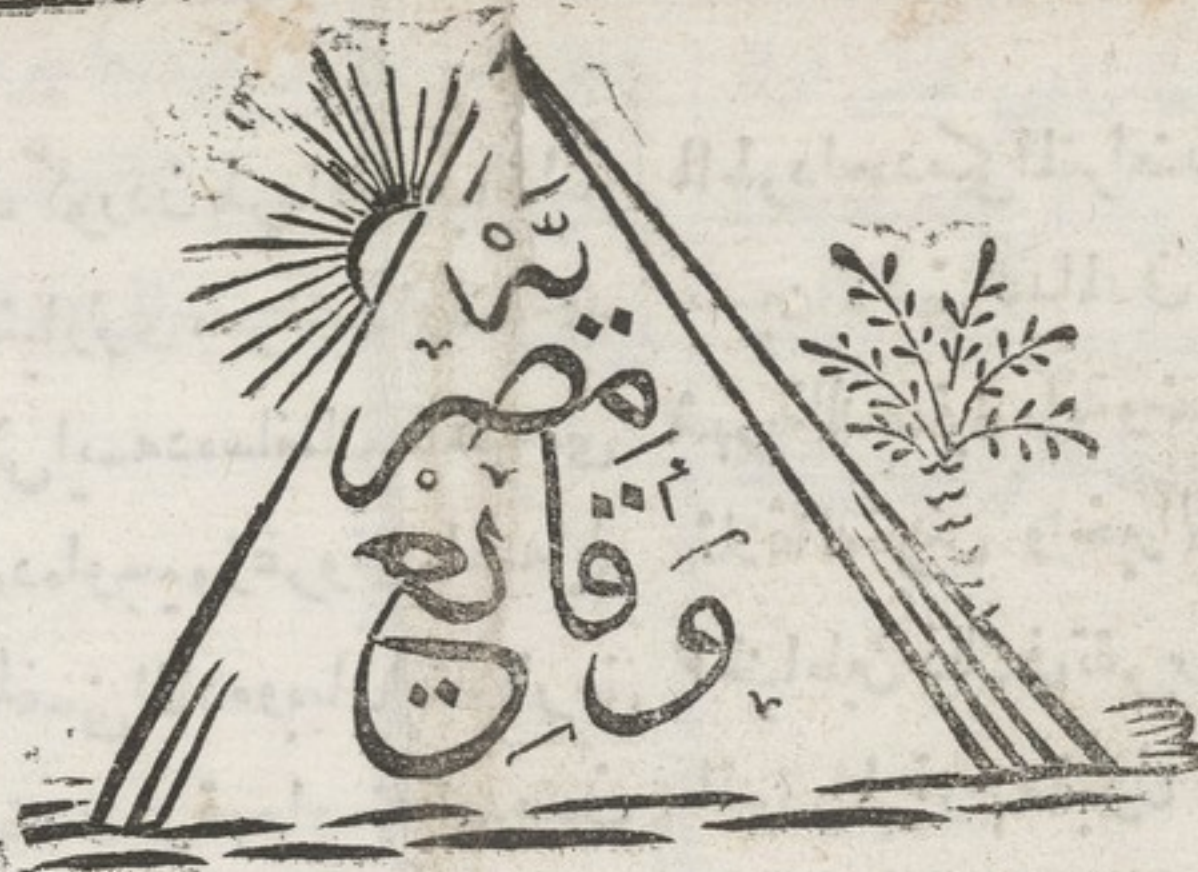 وَقَايِع
مِصْر
يَّة